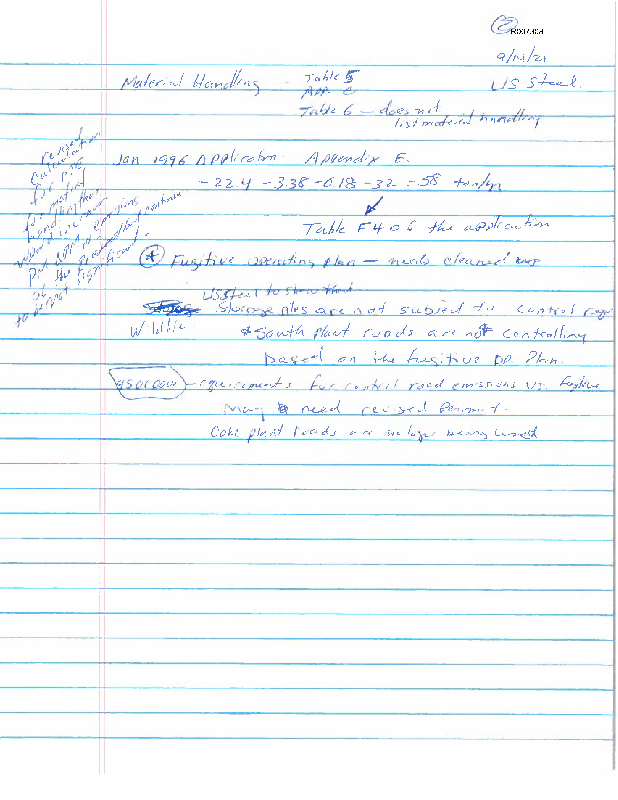 2
R007304
9/14/21
US Steel
Material Handling - Table 5
App. E
Table 6 - does not
list material handling
revised
calculation
for
for material
handling
would increase
put emissions
of the
to significant.
Jan 1996 Application. Appendix E.
- 22.4 - 3.38 - 0.18 - 32 = 58 ton/yr
Table F4 of the application
* Fugitive operating plan - needs cleaned up
US Steel to show that
Storage piles are not subject to control req
* South plant roads are not controlling
based on the fugitive OP Plan.
- requirements for control road emissions vs. Fugitive
May need revised Permit.
Coke plant roads are no longer being used